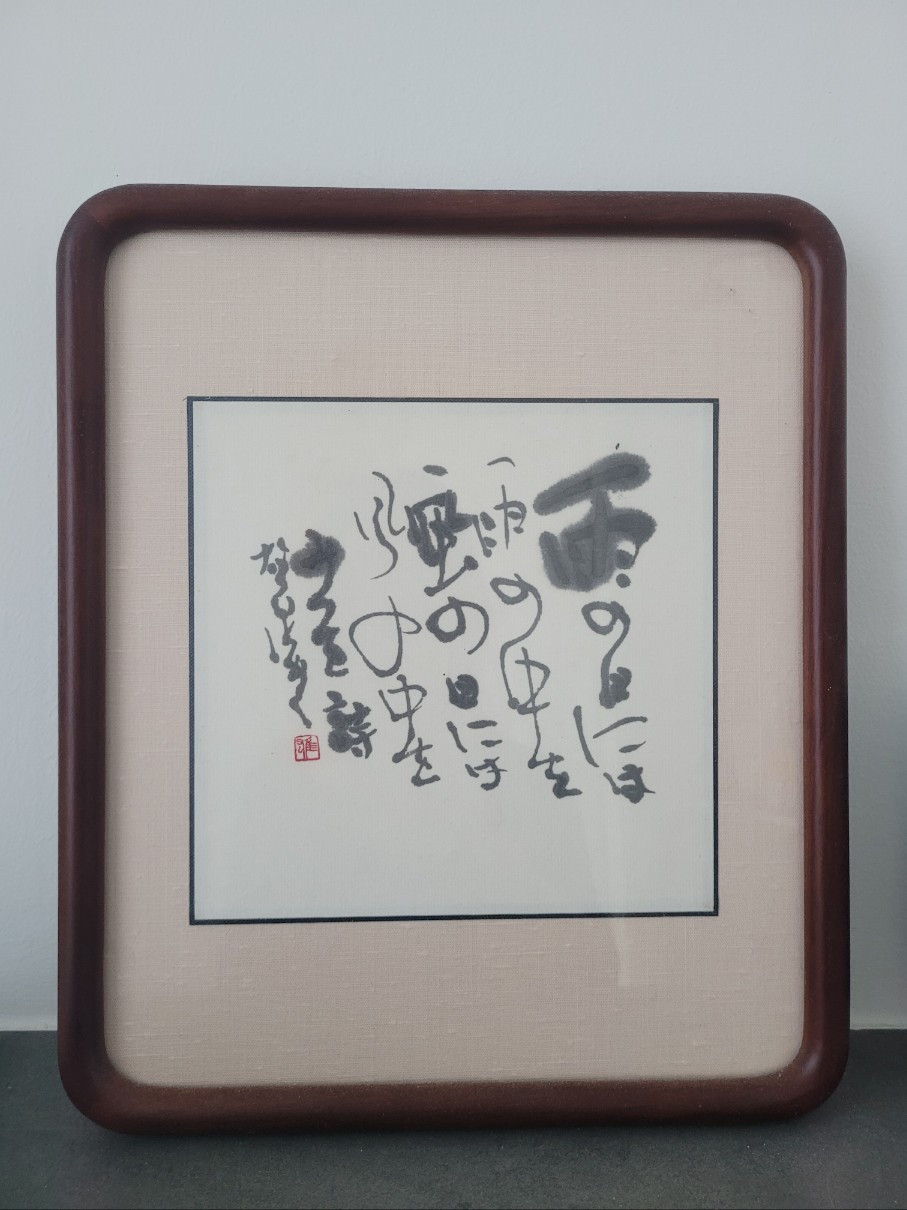 雨の日には
雨の中を
風の日には
風の中を
みつを 詩